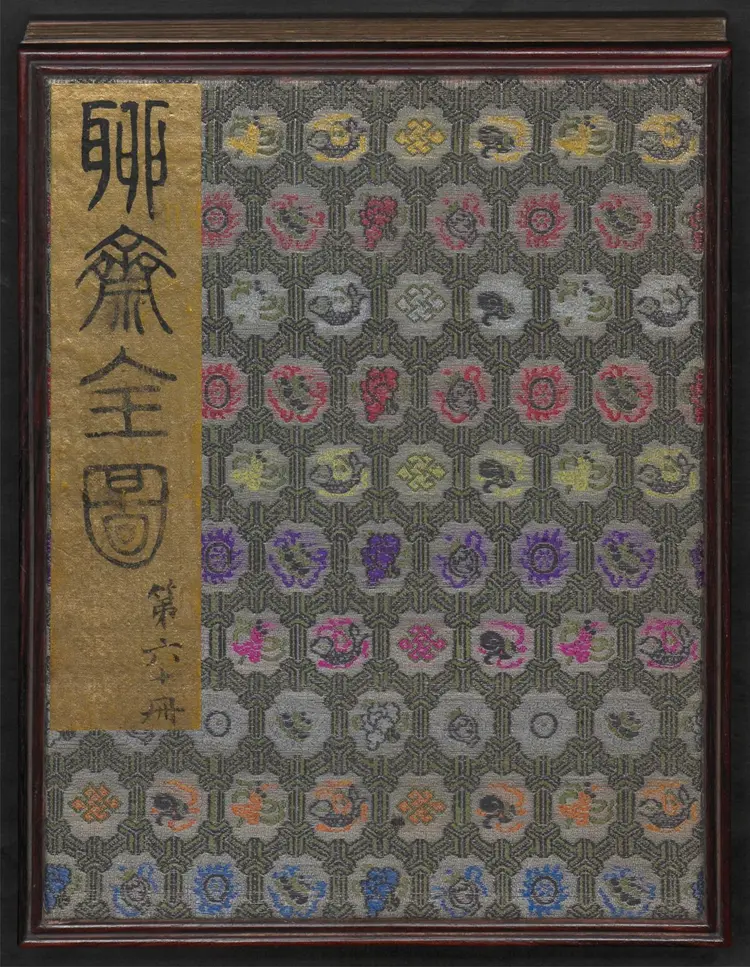 聊齋全圖
第六十冊